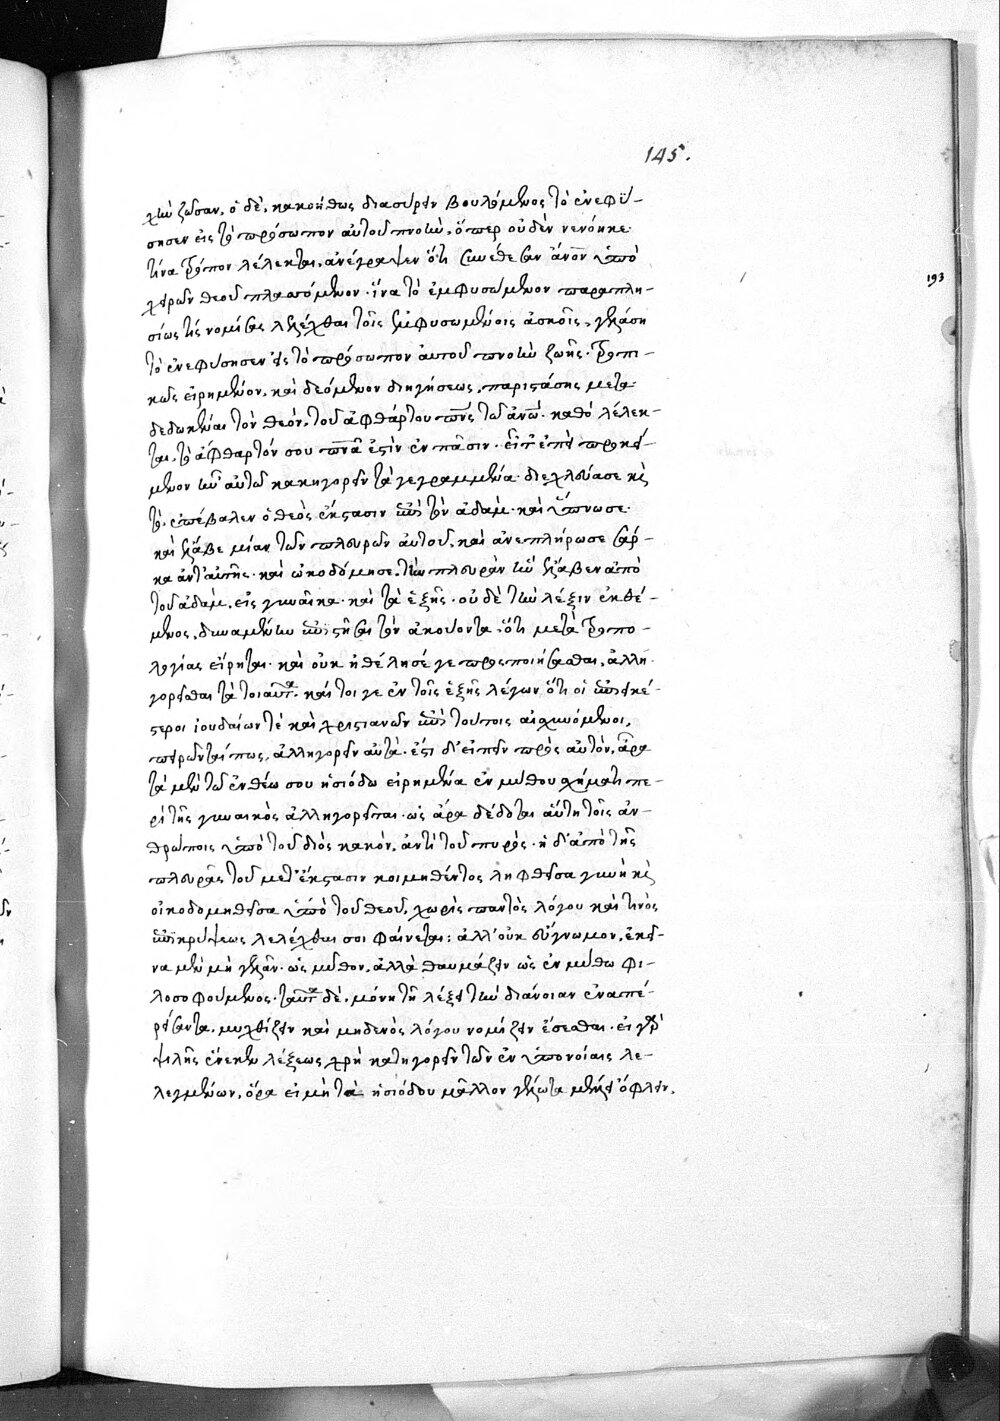 145.
193
χὴν ζῶσαν, ὁ δὲ, κακοήθως διασύρειν βουλόμενος τὸ ἐνεφύ-
σησεν εἰς τὸ πρόσωπον αὐτοῦ πνοὴν, ὅπερ οὐδὲν νενόηκε
τίνα τρόπον λέλεκται, ἀνέγραψεν ὅτι συνέθεσαν ἄνον ὑπὸ
χειρῶν θεοῦ πλασσόμενον· ἵνα τὸ ἐμφυσώμενον παραπλη-
σίως τὶς νομίσας λελέχθαι τοῖς ἐμφυσωμένοις ἀσκοῖς, γελάση
τὸ ἐνεφύσησεν εἰς τὸ πρόσωπον αὐτοῦ πνοὴν ζωῆς· τροπι-
κῶς εἰρημένον, καὶ δεόμενον διηγήσεως, παριστάσης μετα-
δεδωκέναι τὸν θεὸν, τοῦ ἀφθάρτου πνς τῶ ἀνω· καθὸ λέλεκ-
ται, τὸ ἄφθαρτόν σου πνα ἐστὶν ἐν πᾶσιν· εἶτ' ἐπεὶ προκεί-
μενον ἦν αὐτῶ κακηγορεῖν τὰ γεγραμμένα· διεχλεύασε καὶ
τὸ, ἐπέβαλεν ὁ θεὸς ἔκστασιν ἐπὶ τὸν ἀδὰμ· καὶ ὕπνωσε·
καὶ ἔλαβε μίαν τῶν πλευρῶν αὐτοῦ, καὶ ἀνεπλήρωσε σάρ-
κα ἀντ' αὐτῆς· καὶ ὠκοδόμησε τὴν πλευρὰν ἣν ἔλαβεν ἀπὸ
τοῦ ἀδὰμ, εἰς γυναῖκα· καὶ τὰ ἑξῆς· οὐδὲ τὴν λέξιν ἐκθέ-
μενος, δυναμένην ἐπιστῆσαι τὸν ἀκούοντα, ὅτι μετὰ τροπο-
λογίας εἴρηται· καὶ οὐκ ἠθέλησέ γε προσποιήσασθαι, ἀλλη-
γορεῖσθαι τὰ τοιαῦτα· καίτοι γε ἐν τοῖς ἑξῆς λέγων ὅτι οἱ ἐπιεικέ-
στεροι ἰουδαίων τὲ καὶ χριστιανῶν ἐπὶ τούτοις αἰσχυνόμενοι,
πειρῶνταί πως, ἀλληγορεῖν αὐτά· ἔστι δ' εἰπεῖν πρὸς αὐτὸν, ἆρα
τὰ μὲν τῶ ἐνθέω σου ἡσιόδω εἰρημένα ἐν μύθου σχήματι πε-
ρὶ τῆς γυναικὸς ἀλληγορεῖται· ὡς ἄρα δέδοται αὕτη τοῖς ἀν-
θρώποις ὑπὸ τοῦ διὸς κακὸν, ἀντὶ τοῦ πυρὸς· ἡ δ' ἀπὸ τῆς
πλευρᾶς τοῦ μετ' ἔκστασιν κοιμηθέντος ληφθεῖσα γυνὴ καὶ
οἰκοδομηθεῖσα ὑπὸ τοῦ θεοῦ, χωρὶς παντὸς λόγου καὶ τινὸς
ἐπικρύψεως λελέχθαι σοι φαίνεται; ἀλλ' οὐκ εὔγνωμον, ἐκεῖ-
να μὲν μὴ γελᾶν· ὡς μῦθον, ἀλλὰ θαυμάζειν ὡς ἐν μύθω φι-
λοσοφούμενος· ταῦτα δὲ, μόνη τῆ λέξει τὴν διάνοιαν ἐναπε-
ρείσαντα, μυχθίζειν καὶ μηδενὸς λόγου νομίζειν ἔσεσθαι· εἰ γὰρ
ψιλῆς ἕνεκεν λέξεως χρὴ κατηγορεῖν τῶν ἐν ὑπονοίαις λε-
λεγμένων, ὅρα εἰ μὴ τὰ ἡσιόδου μᾶλλον γέλωτα ὄφλειν.